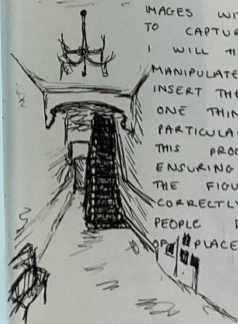 IMAGES WIT
TO CAPTUR
I WILL TH
MANIPULATE
INSERT THE
ONE THIN
PARTICULAR
THIS PROC
ENSURING
THE FIGU
CORRECTLY
PEOPLE
OF PLACE